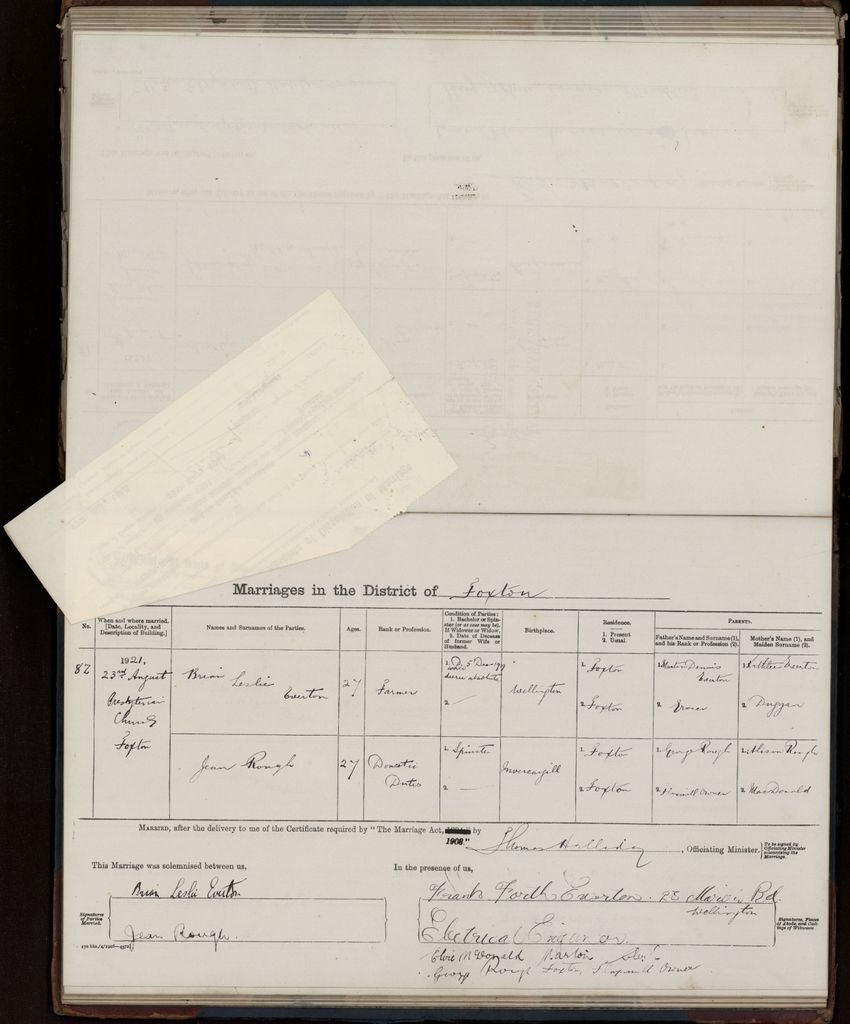 Marriages in the District of Foxton
No.
When and where married. [Date, Locality, and Description of Building.]
Names and Surnames of the Parties.
Ages.
Rank or Profession.
Condition of Parties: 1. Bachelor or Spinster (or as case may be). If Widower or Widow, 2. Date of Decease of former Wife or Husband.
Birthplace.
Residence. 1. Present. 2. Usual.
PARENTS.
Father's Name and Surname (1), and his Rank or Profession (2).
Mother's Name (1), and Maiden Surname (2).
82
1921.
23rd August
Presbyterian
Church
Foxton
Brian Leslie Everton
27
Farmer
decree absolute
2
Wellington
1 Foxton
2 Foxton
1 Martin Dennis Everton
2 Grocer
1 Kathleen Everton
2 Duggan
Jean Rough
27
Domestic Duties
1. Spinster
2. —
Invercargill
1. Foxton
2 Foxton
1. George Rough
2 Flaxmill Owner
1. Alison Rough
2 MacDonald
MARRIED, after the delivery to me of the Certificate required by "The Marriage Act, 1908," by
Thomas Halliday, Officiating Minister. [To be signed by Officiating Minister solemnizing the Marriage.
This Marriage was solemnised between us,
In the presence of us,
Brian Leslie Everton
Jean Rough.
Signatures of Parties Married.
Frank Forth Everton. Rd.
Wellington
Electrical Engineer
McDonald Marton
George Rough Foxton, Flaxmill Owner
Signatures, Places of Abode, and Callings of Witnesses.